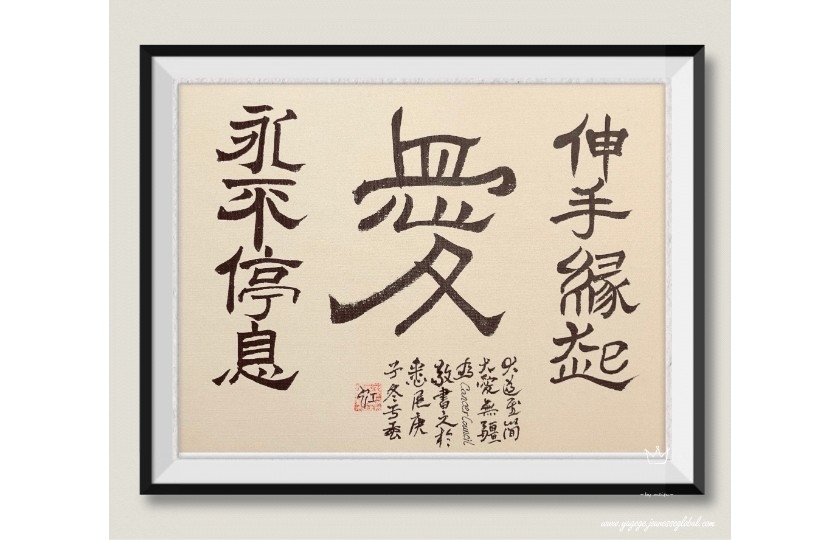 伸手緣起
愛
永不停息
大道至簡
大愛無疆
為 Cancer Council
敬書之於
悉尼庚
子冬
江